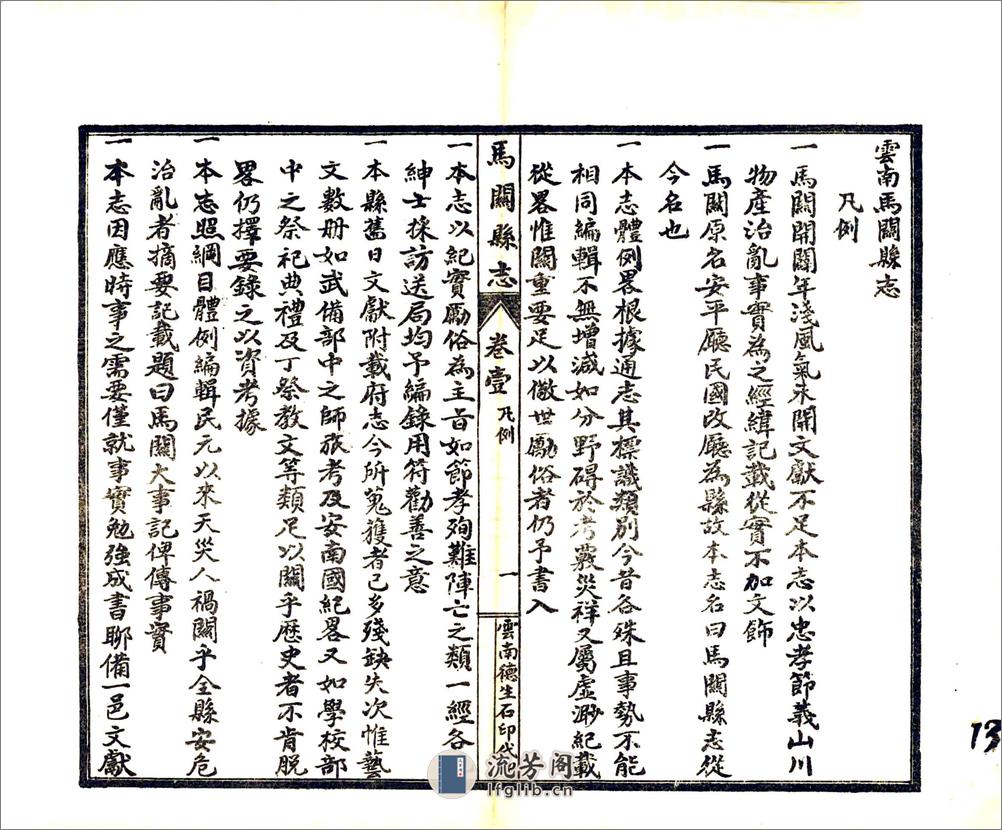 雲南馬關縣志
凡例
一馬關開闢年淺風氣未開文獻不足本志以忠孝節義山川
物產治亂事實為之經緯記載從實不加文飾
一馬關原名安平廳民國改廳為縣故本志名曰馬關縣志從
今名也
一本志體例畧根據通志其標識類別今昔各殊且事勢不能
相同編輯不無增減如分野碍於考覈災祥又屬虛渺紀載
從畧惟關重要足以儆世勵俗者仍予書入
馬關縣志
卷壹
凡例
一
雲南德生石印代
一本志以紀實勵俗為主旨如節孝殉難陣亡之類一經各
紳士採訪送局均予編錄用符勸善之意
一本縣舊日文獻附載府志今所蒐獲者已多殘缺失次惟藝
文數册如武備部中之師旅考及安南國紀畧又如學校部
中之祭祀典禮及丁祭教文等類足以關乎歷史者不肯脱
畧仍擇要錄之以資考據
一本志照綱目體例編輯民元以來天災人禍關乎全縣安危
治亂者摘要記載題曰馬關大事記俾傳事實
一本志因應時事之需要僅就事實勉強成書聊備一邑文獻
13
流芳阁
lfglib.cn